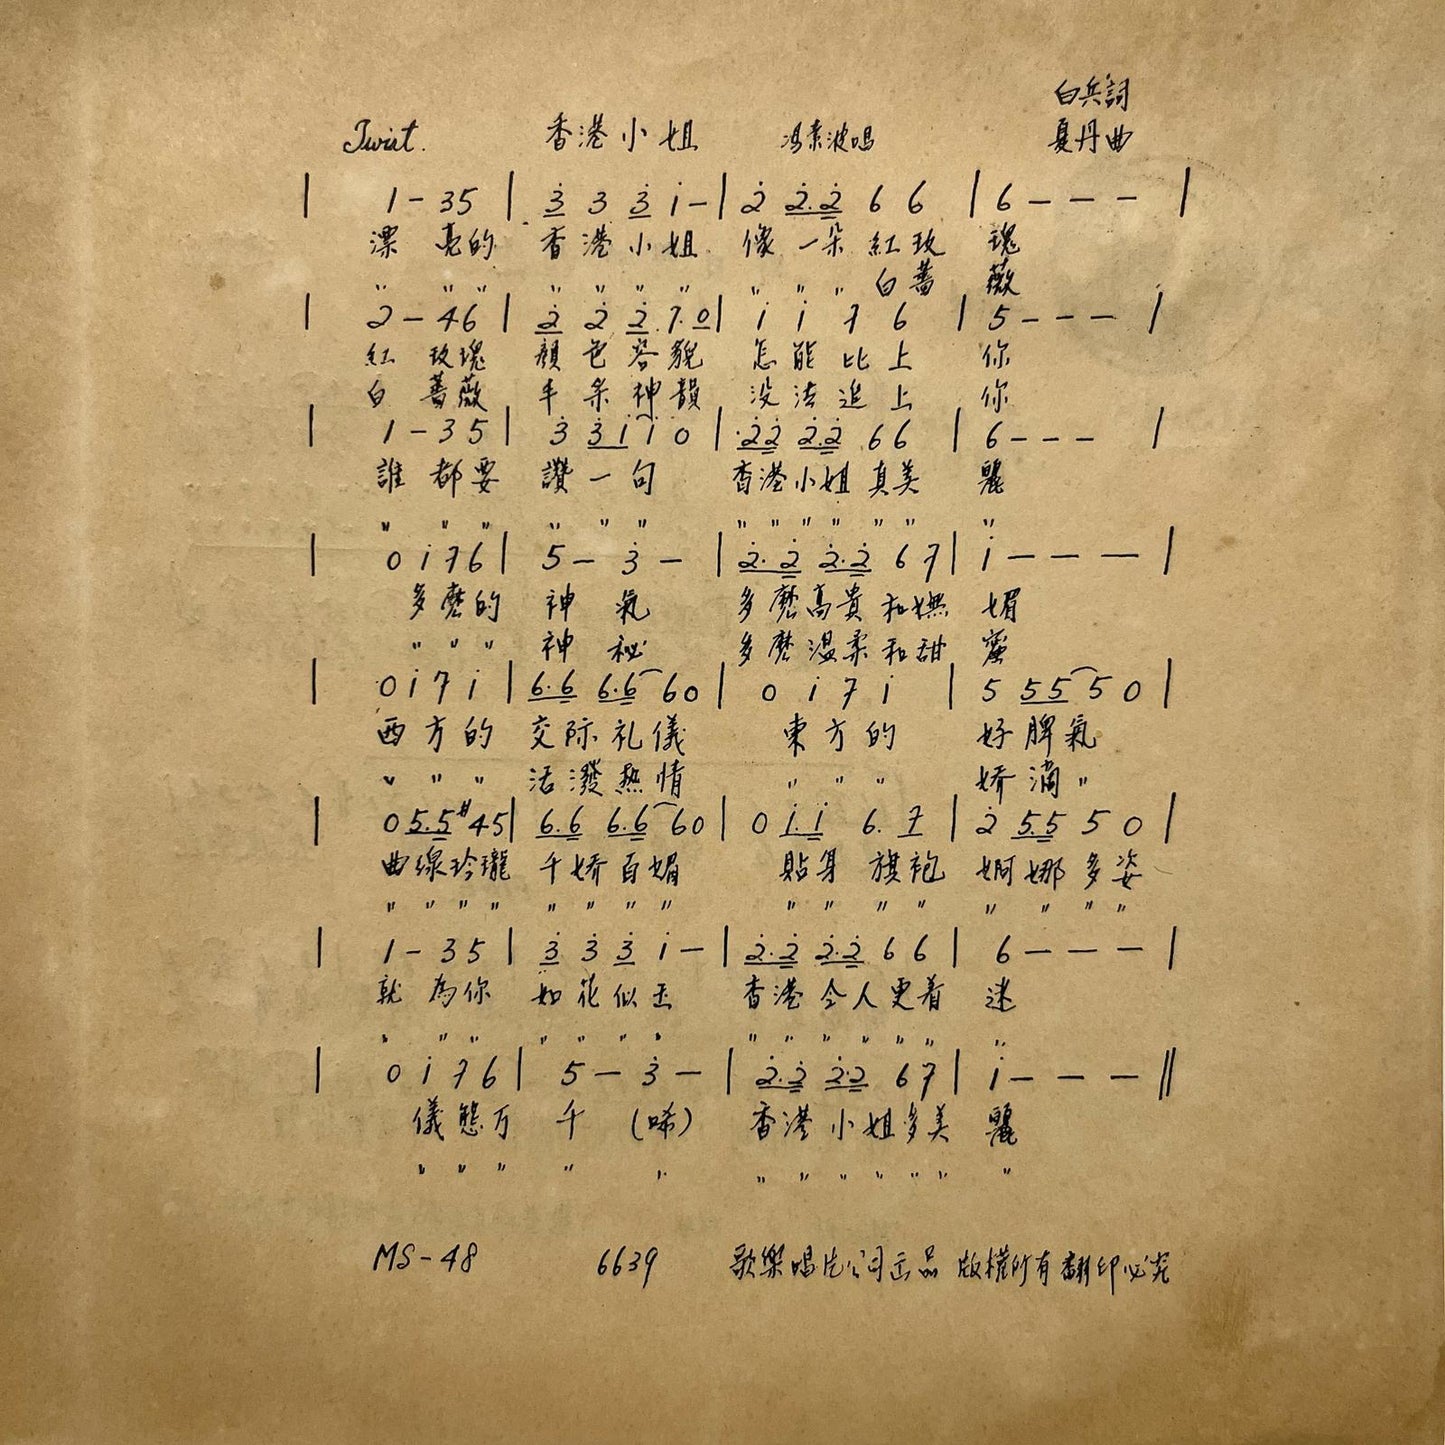 白兵詞
Twist. 香港小姐 馮素波唱 夏丹曲
| 1 - 35 | 3̇ 3 3̇ i - | 2̇ 2̇.2̇ 6 6 | 6 - - - |
漂亮的 香港小姐 像一朵紅玫 瑰
" " " " " " " " " " 白薔 薇
| 2 - 46 | 2̇ 2̇ 2̇ 7.0 | i i 7 6 | 5 - - - |
紅玫瑰 顏色容貌 怎能比上 你
白薔薇 丰采神韻 没法追上 你
| 1 - 35 | 3̇ 3̇ i i 0 | 2̇2̇ 2̇.2̇ 66 | 6 - - - |
誰都要 讚一句 香港小姐真美 麗
" " " " " " " " " " " " "
| 0 i 76 | 5 - 3̇ - | 2̇.2̇ 2̇.2̇ 6 7 | i - - - |
多麽的 神氣 多麽高貴和嫵 媚
" " " 神秘 多麽溫柔和甜 蜜
| 0 i 7 i | 6.6 6.6 60 | 0 i 7 i | 5 55 5 0 |
西方的 交际礼儀 東方的 好脾氣
" " " 活潑熱情 " " " 娇滴"
| 0 5.5 #45 | 6.6 6.6 60 | 0 i.i 6. 7 | 2̇ 5.5 5 0 |
曲線玲瓏 千娇百媚 貼身旗袍 婀娜多姿
" " " " " " " " " " " " " " " "
| 1 - 35 | 3̇ 3̇ 3̇ i - | 2̇.2̇ 2̇.2̇ 6 6 | 6 - - - |
就為你 如花似玉 香港令人更着 迷
" " " " " " " " " " " " " "
| 0 i 76 | 5 - 3̇ - | 2̇.2̇ 2̇.2̇ 67 | i - - - ||
儀態万 千 (唏) 香港小姐多美 麗
" " " " " " " " " " " "
MS-48 6639 歌樂唱片公司出品 版權所有翻印必究